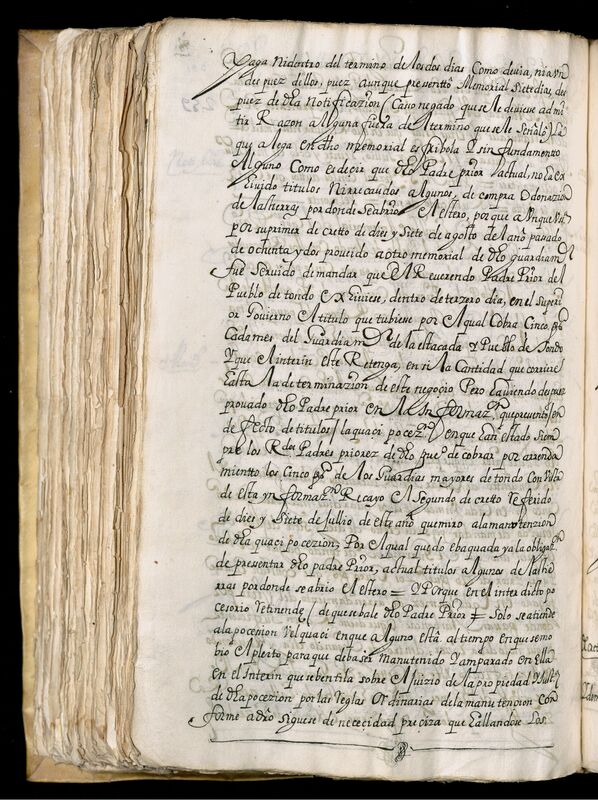 Paga Nidentro del termino de los dos dias Como devia, ni aun
despuez dellos, puez aunque presentto Memorial siete dias, des
puez de dha Notificazion / Caso negado que se le deviese admi
tir Razon alguna fuera del termino que se le señalo / Lo
que alega en dho memorial es fribola y sin fundamento
Alguno Como es decir que dho Padre prior actual, no ha ex
Euido titulos Nirrecaudos algunos, de compra O donazion
de las tierras por donde se abrio el estero, por que aunque
por suprimer decretto de dies y siete de agosto del año pasado
de ochenta y dos proueido a otro memorial de dho guardian
fue seruido de mandar que el Reuerendo Padre Prior del
Pueblo de tondo exiuiese, dentro de terzero dia, en el superi
or Gouierno el titulo que tubiese por el qual Cobra Cinco pos
Cada mes del Guardian de la estacada y Pueblo de Tondo
Y que el interin este Retenga, en si la Cantidad que corriere
hasta la determinazion de este negocio Pero hauiendo des
prouado dho Padre prior en la Informazon que presento / en
defecto de titulos / la quaci pocezon en que han estado siem
pre los Rdos Padres priorez de dho de cobrar por arrenda
miento los Cinco pos de los Guardias mayores de tondo Con vista
de esta ynformazon Recayo el segundo decretto Referido
de dies y siete de Jullio de este año que miro a la manotenzion
de dha quaci pocezion; Por el qual quedo ebaquada ya la obligazon
de presentar dho padre Prior, actual titulos algunos de las tie
rras por donde se abrio el estero = y Porque en el interdicto po
cesorio Retinende / de que se bale dho Padre Prior = Solo se atiende
a la pocezion vel quaci en que alguno esta al tiempo en que se mo
bio el pleito para que deba ser manutenido Y amparado en Ella
en el Interin que se bentila sobre el juizio de la propiedad
de dha pocezion por las Reglas Ordinarias de la manutencion con
forme a dro siguese de nececidad preciza que hallandose los